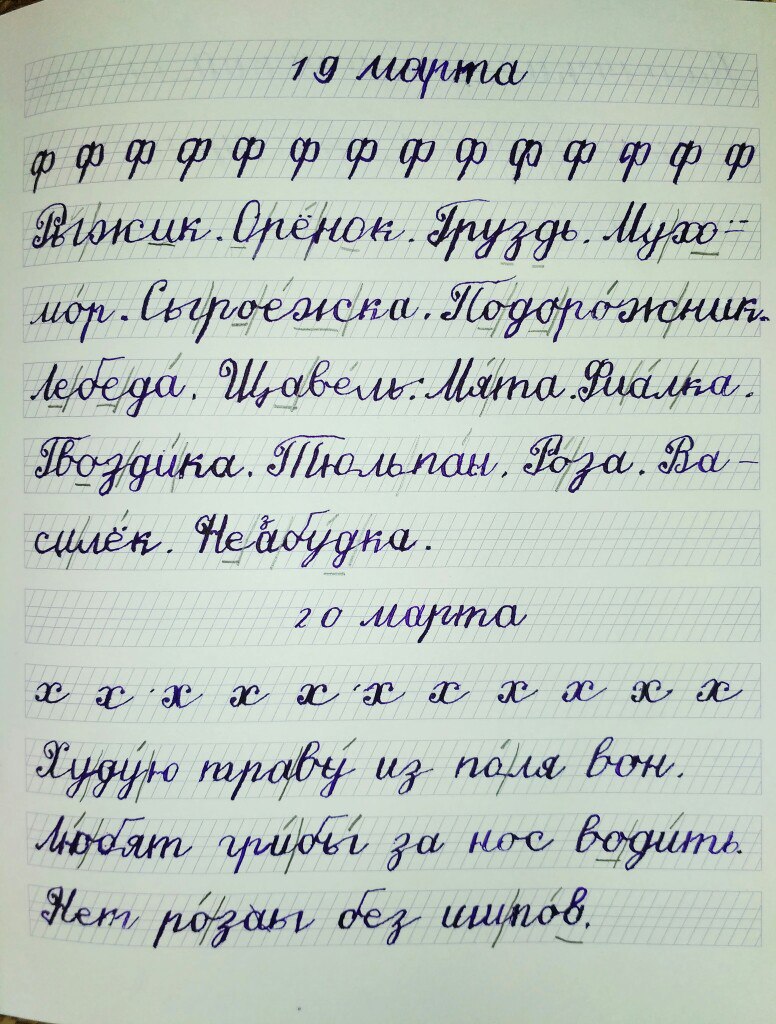 19 марта
ф ф ф ф ф ф ф ф ф ф ф ф ф ф
Ры́жик. Опёнок. Груздь. Мухо=
мо́р. Сырое́жка. Подоро́жник.
Лебеда́. Щаве́ль. Мя́та. Фиа́лка.
Гвозди́ка. Тюльпа́н. Ро́за. Ва-
силёк. Незабу́дка.
20 марта
х х х х х х х х х х х
Худу́ю траву́ из по́ля вон.
Лю́бят грибы́ за нос води́ть.
Нет ро́зы без шипо́в.